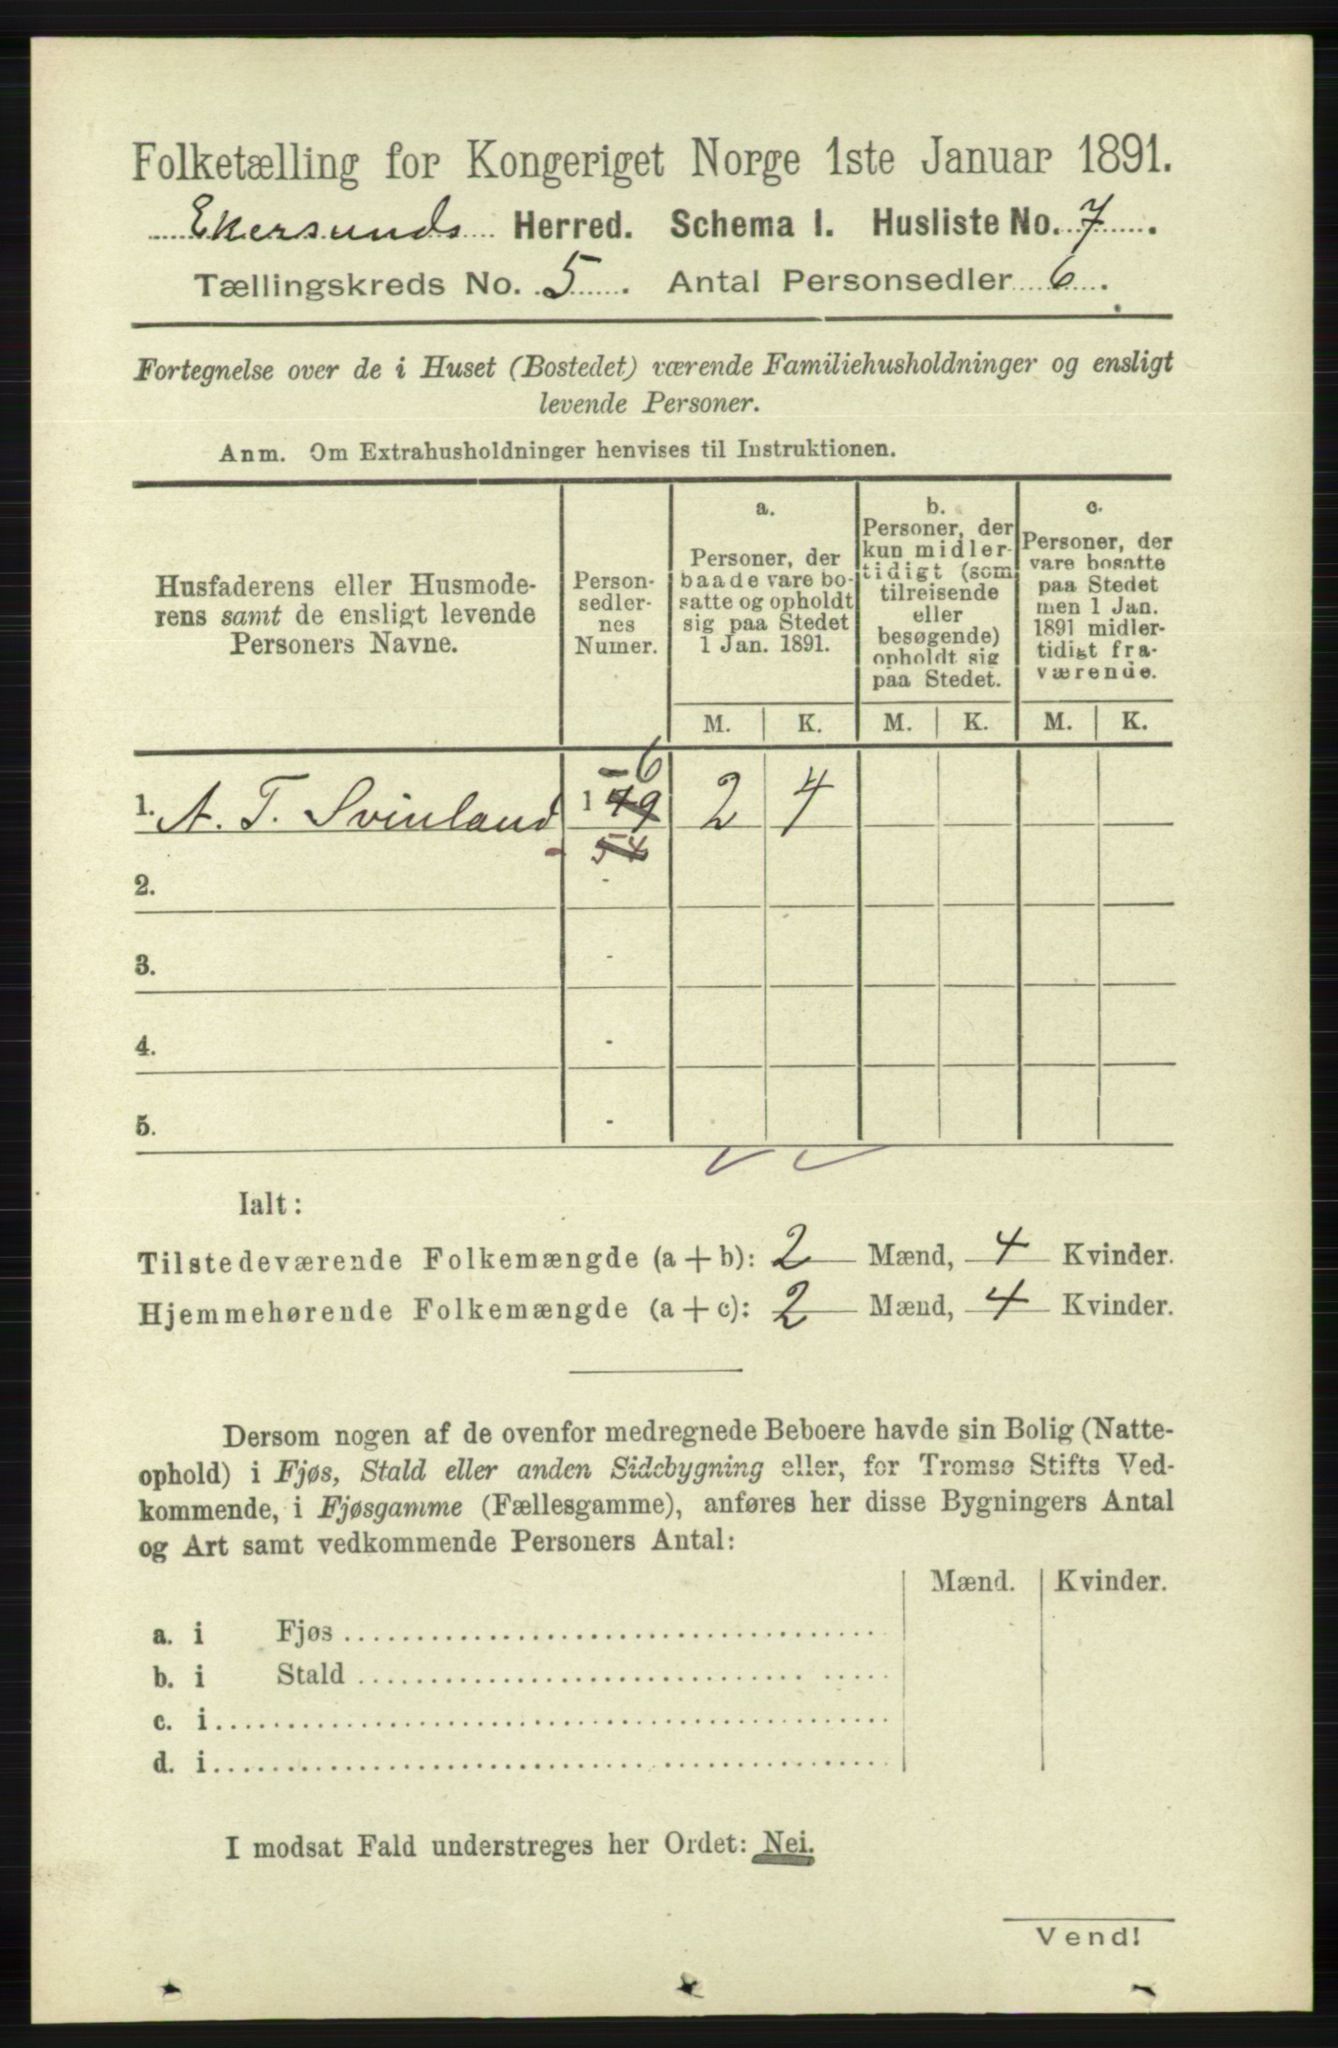 Folketælling for Kongeriget Norge 1ste Januar 1891.
Ekersunds Herred. Schema I. Husliste No. 7.
Tællingskreds No. 5. Antal Personsedler 6.
Fortegnelse over de i Huset (Bostedet) værende Familiehusholdninger og ensligt
levende Personer.
Anm. Om Extrahusholdninger henvises til Instruktionen.
Husfaderens eller Husmode-
rens samt de ensligt levende
Personers Navne.
Person-
sedler-
nes
Numer.
a.
Personer, der
baade vare bo-
satte og opholdt
sig paa Stedet
1 Jan. 1891.
b.
Personer, der
kun midler-
tidigt (som
tilreisende
eller
besøgende)
opholdt sig
paa Stedet.
c.
Personer, der
vare bosatte
paa Stedet
men 1 Jan.
1891 midler-
tidigt fra-
værende.
M. K. M. K. M. K.
- 6
1. A. T. Svinland 1 49 2 4
54
2. -
3. -
4. -
5. -
Ialt:
Tilstedeværende Folkemængde (a + b): 2 Mænd, 4 Kvinder.
Hjemmehørende Folkemængde (a + c): 2 Mænd, 4 Kvinder.
Dersom nogen af de ovenfor medregnede Beboere havde sin Bolig (Natte-
ophold) i Fjøs, Stald eller anden Sidebygning eller, for Tromsø Stifts Ved-
kommende, i Fjøsgamme (Fællesgamme), anføres her disse Bygningers Antal
og Art samt vedkommende Personers Antal:
Mænd. Kvinder.
a. i Fjøs
b. i Stald
c. i
d. i
I modsat Fald understreges her Ordet: Nei.
Vend!